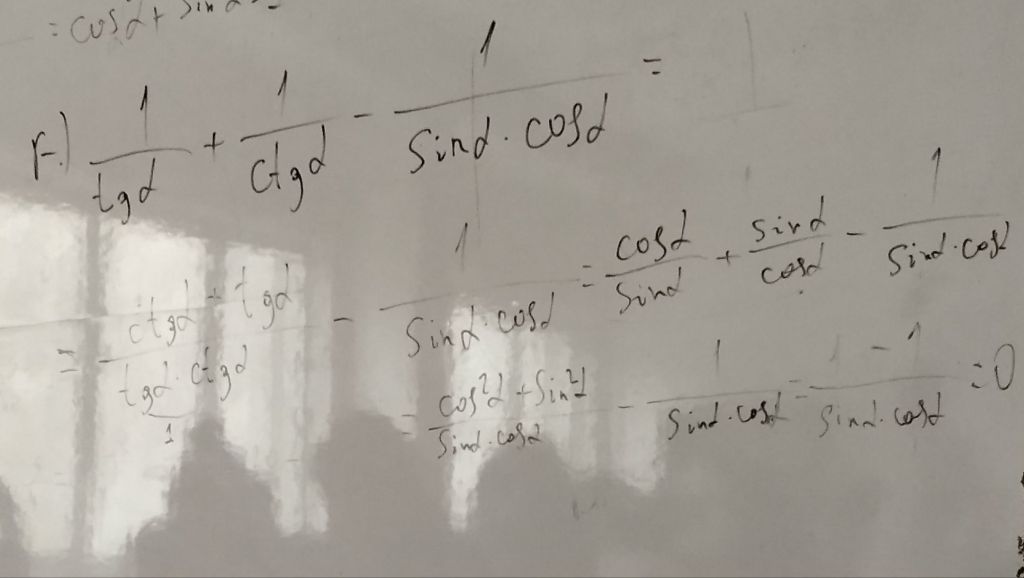 = cos α + sin α
г.) 1/tgα + 1/ctgα - 1/(sinα · cosα) =
= (ctgα + tgα)/(tgα · ctgα) - 1/(sinα · cosα) = cosα/sinα + sinα/cosα - 1/(sinα · cosα)
1
= (cos²α + sin²α)/(sinα · cosα) - 1/(sinα · cosα) = (1 - 1)/(sinα · cosα) = 0